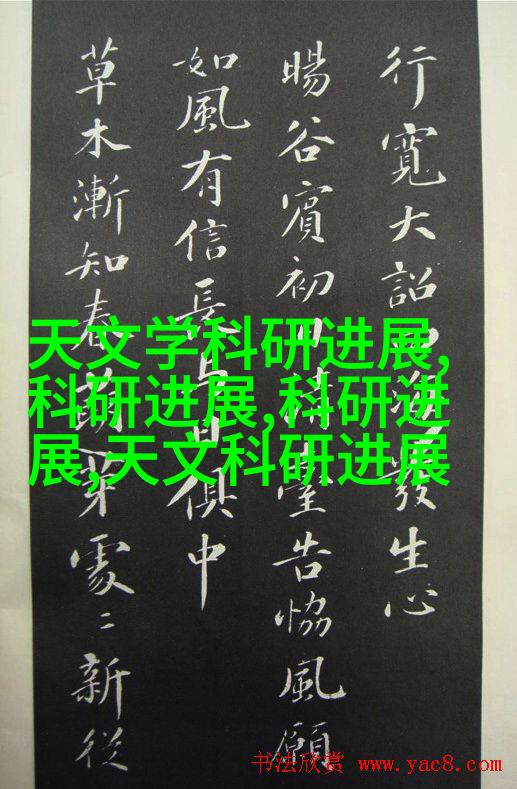 行寬大詔四海發生心
暘谷賓初日清臺告協風願
如風有信長与日俱中
草木漸知春萌芽處〻新從
天文学科研进展,
科研进展,科研进
展,天文科研进展
书法欣赏 www.yac8.com